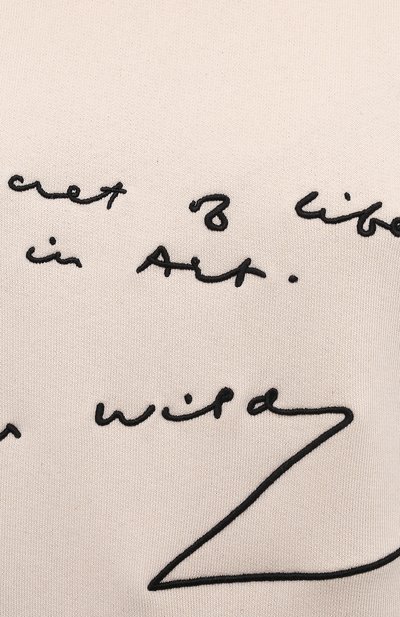 cret & libe
in Art.
wild